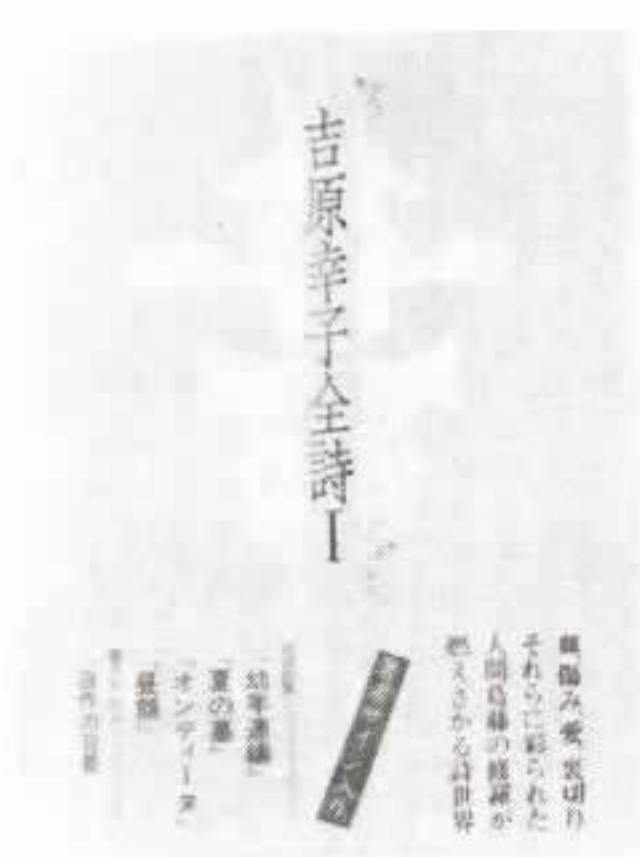 吉原幸子全詩I
傷み、愛、裏切り
それらに彩られた
人間葛藤の修羅が
燃えさかる詩世界
サイン入り
「幼年連祷」
「夏の墓」
「オンディーヌ」
「昼顔」